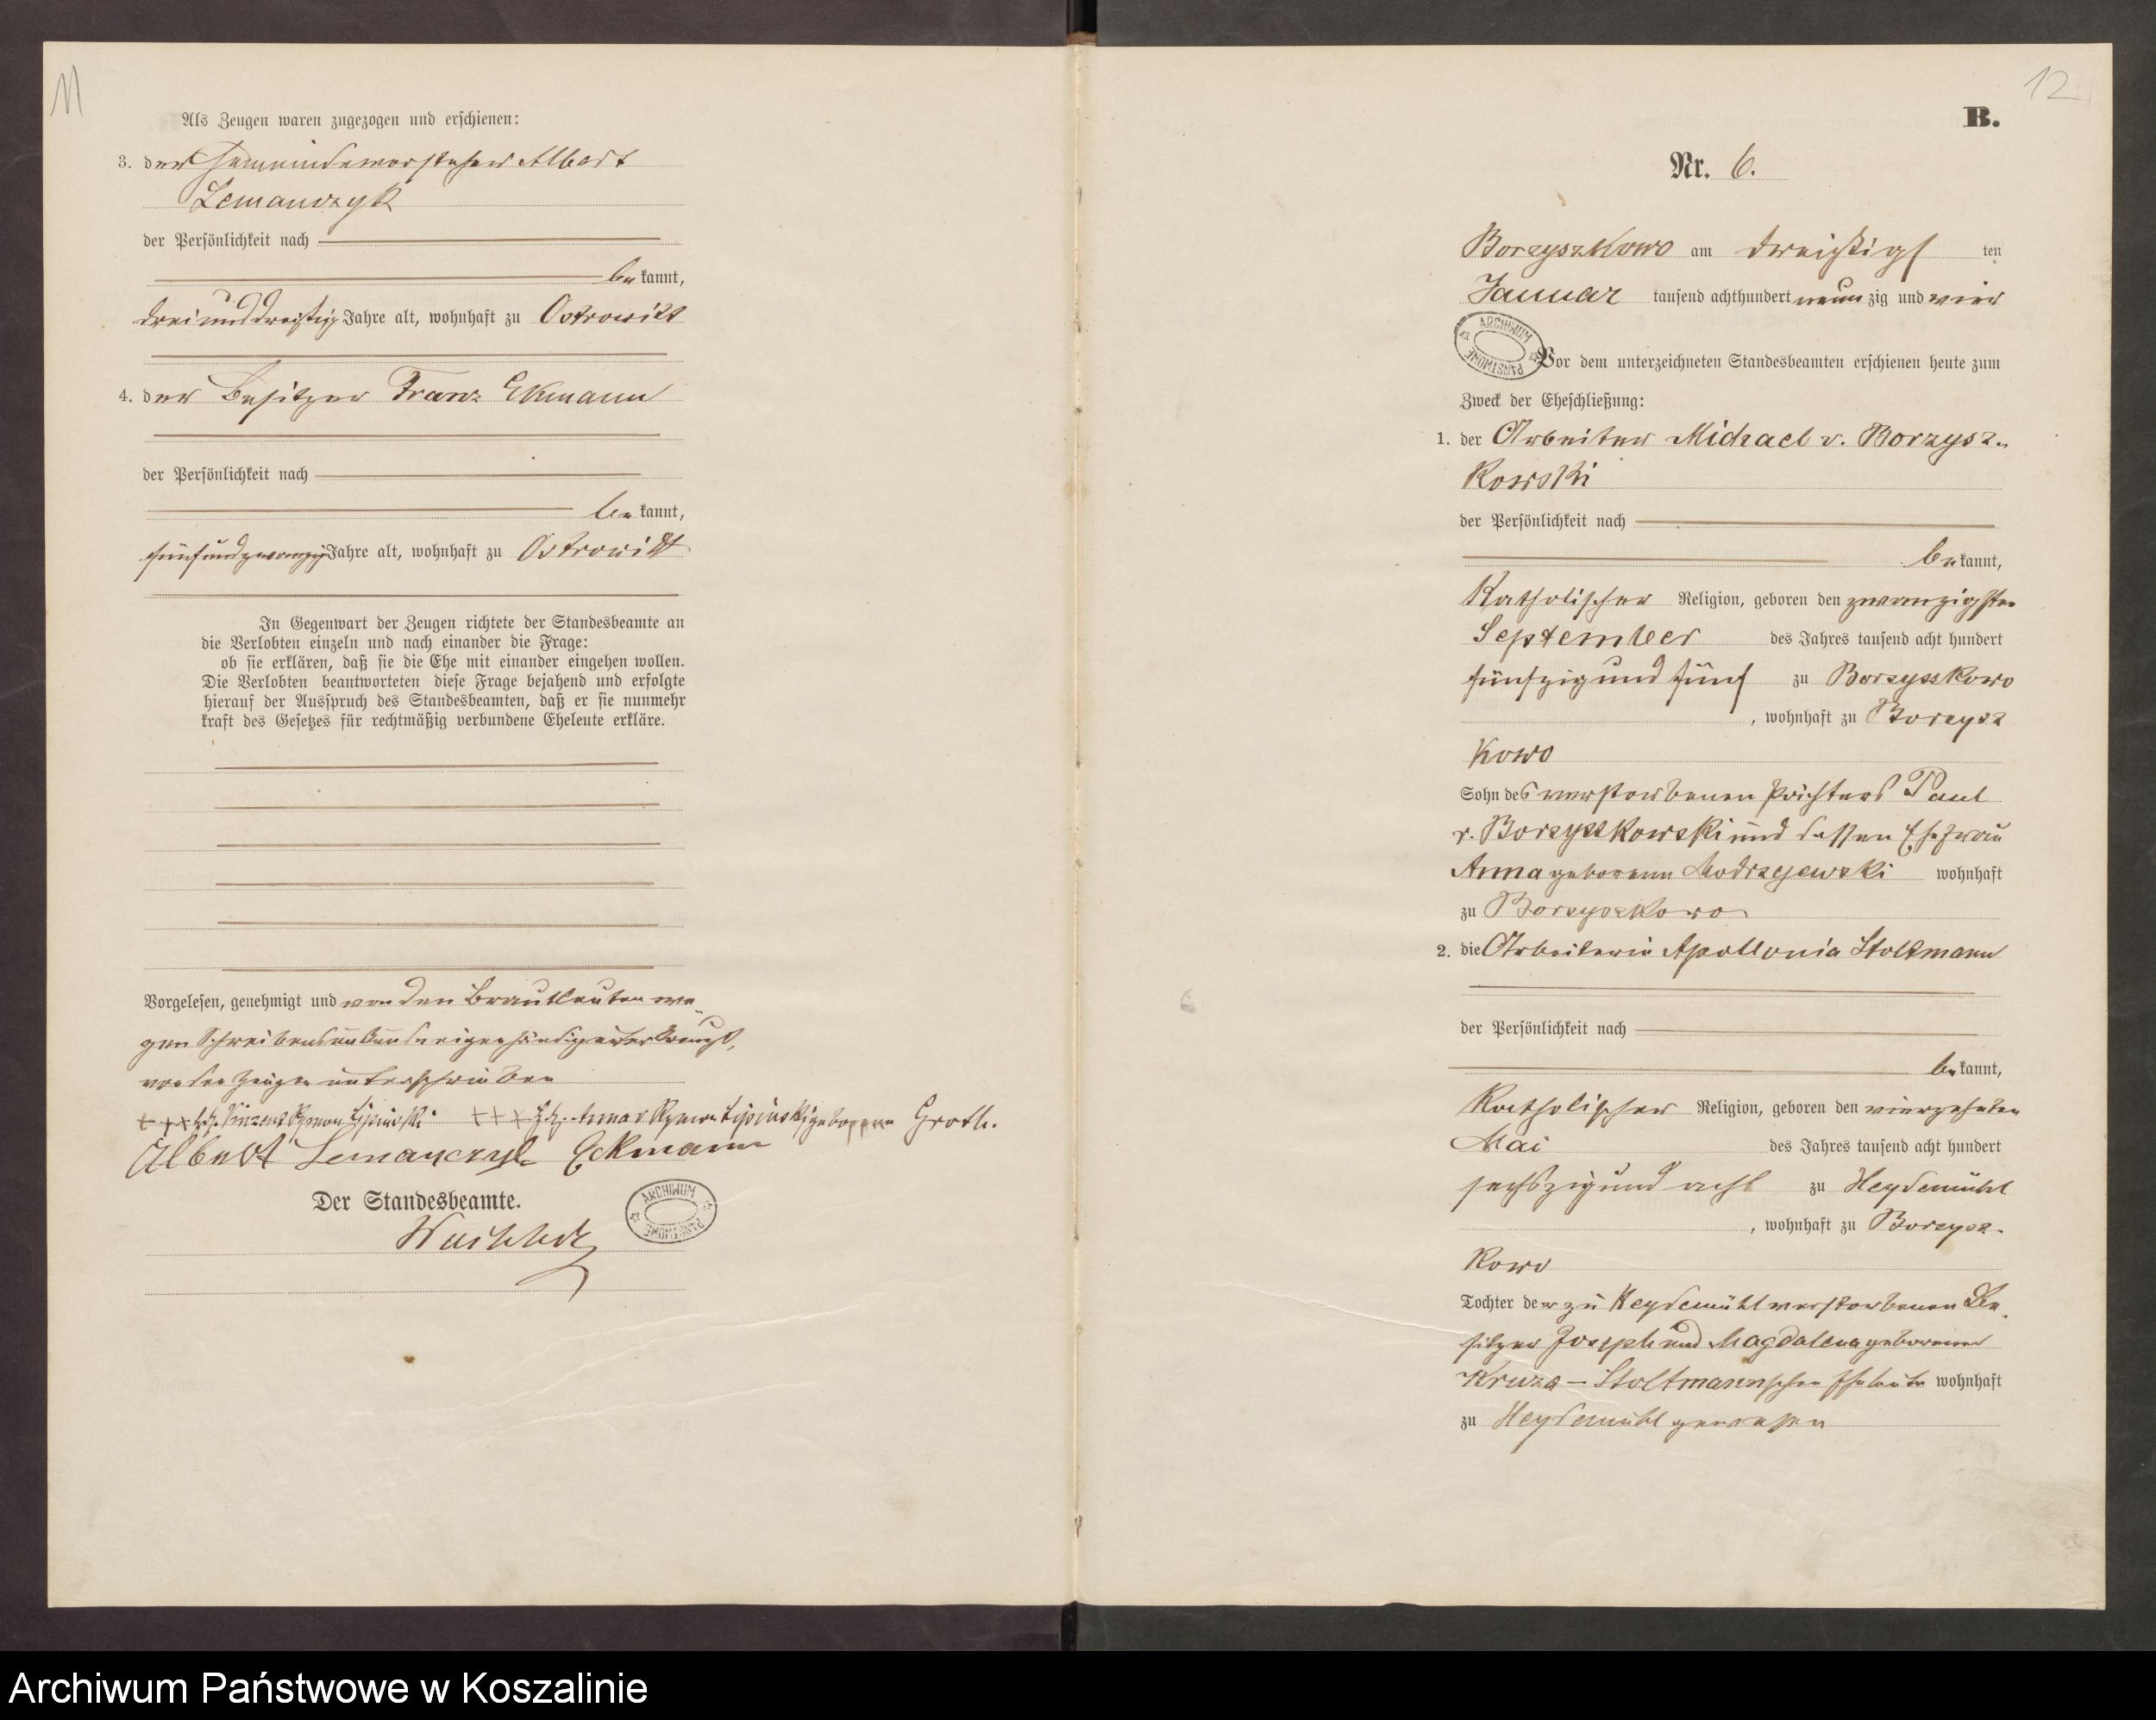 11
Als Zeugen waren zugezogen und erschienen:
3. der Gemeindevorsteher Albert
Lemanczyk
der Persönlichkeit nach
bekannt,
dreiunddreißig Jahre alt, wohnhaft zu Ostrowitt
4. der Besitzer Franz Ekmann
der Persönlichkeit nach
bekannt,
fünfundzwanzig Jahre alt, wohnhaft zu Ostrowitt
In Gegenwart der Zeugen richtete der Standesbeamte an
die Verlobten einzeln und nach einander die Frage:
ob sie erklären, daß sie die Ehe mit einander eingehen wollen.
Die Verlobten beantworteten diese Frage bejahend und erfolgte
hierauf der Ausspruch des Standesbeamten, daß er sie nunmehr
kraft des Gesetzes für rechtmäßig verbundene Eheleute erkläre.
Vorgelesen, genehmigt und von den Brautleuten we-
gen Schreibensunkunde eigenhändig unterkreuzt,
von den Zeugen unterschrieben
+++ Hdz. Vinzent Rymon Lipinski +++ Hdz. Anna v Rymon Lipinski geborene Groth.
Albert Lemanczyk Eckmann
Der Standesbeamte.
ARCHIWUM PAŃSTWOWE
12
B.
Nr. 6.
Borzyszkowo am dreißigsten
Januar tausend achthundert neunzig und vier
ARCHIWUM PAŃSTWOWE
Vor dem unterzeichneten Standesbeamten erschienen heute zum
Zweck der Eheschließung:
1. der Arbeiter Michael v. Borzysz-
kowski
der Persönlichkeit nach
bekannt,
Katholischer Religion, geboren den zwanzigsten
September des Jahres tausend acht hundert
fünfzig und fünf zu Borzyszkowo
, wohnhaft zu Borzysz
kowo
Sohn des verstorbenen Pächters Paul
v. Borzyszkowski und dessen Ehefrau
Anna geborenen Modrzejewski wohnhaft
zu Borzyszkowo
2. die Arbeiterin Apollonia Stoltmann
der Persönlichkeit nach
bekannt,
Katholischer Religion, geboren den vierzehnten
Mai des Jahres tausend acht hundert
sechszig und acht zu Heydemühl
, wohnhaft zu Borzysz-
kowo
Tochter der zu Heydemühl verstorbenen Be-
sitzer Joseph und Magdalena geborene
Kruza - Stoltmannschen Eheleute wohnhaft
zu Heydemühl gewesen
Archiwum Państwowe w Koszalinie